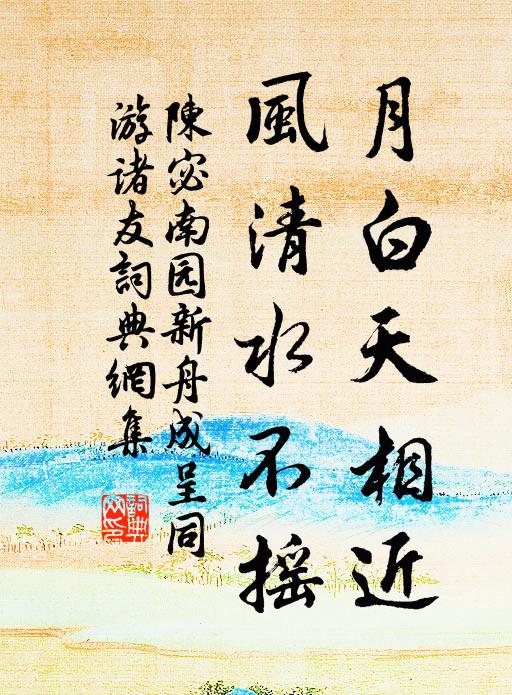 月白天相近
風清水不摇
陳宓南园新舟成呈同
游诸友詞典網集
詞典